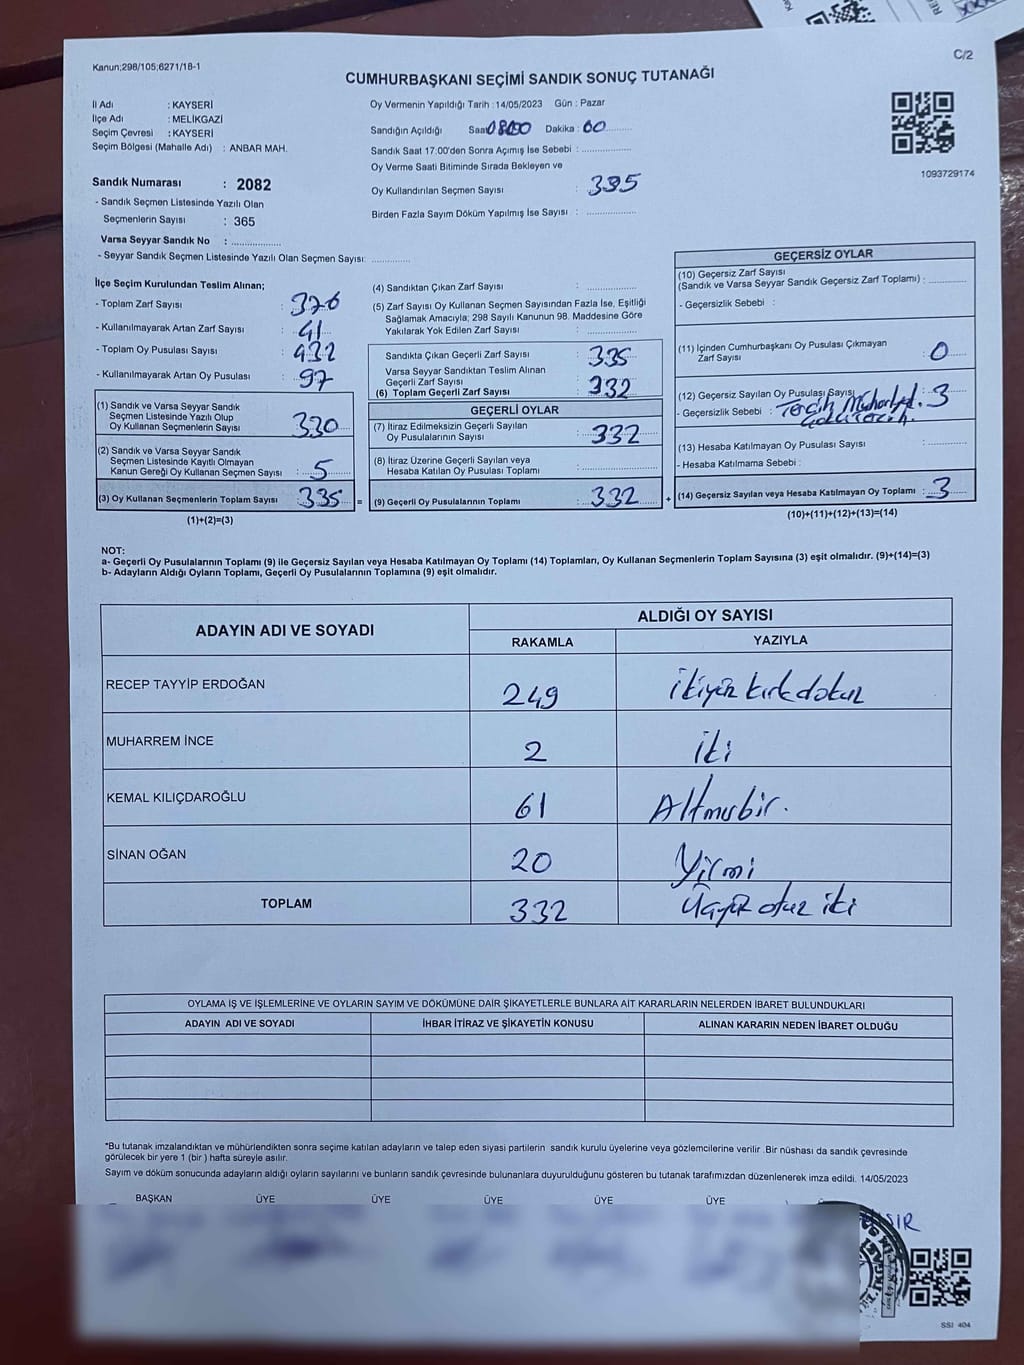 Kanun;298/105;6271/18-1
C/2
CUMHURBAŞKANI SEÇİMİ SANDIK SONUÇ TUTANAĞI
İl Adı : KAYSERİ
İlçe Adı : MELİKGAZİ
Seçim Çevresi : KAYSERİ
Seçim Bölgesi (Mahalle Adı) : ANBAR MAH.
Oy Vermenin Yapıldığı Tarih : 14/05/2023 Gün : Pazar
Sandığın Açıldığı Saat Dakika : 00
Sandık Saat 17.00'den Sonra Açımış İse Sebebi :
Oy Verme Saati Bitiminde Sırada Bekleyen ve
Oy Kullandırılan Seçmen Sayısı : 335
Birden Fazla Sayım Döküm Yapılmış İse Sayısı :
1093729174
Sandık Numarası : 2082
- Sandık Seçmen Listesinde Yazılı Olan
Seçmenlerin Sayısı : 365
Varsa Seyyar Sandık No :
- Seyyar Sandık Seçmen Listesinde Yazılı Olan Seçmen Sayısı:
İlçe Seçim Kurulundan Teslim Alınan;
- Toplam Zarf Sayısı : 376
- Kullanılmayarak Artan Zarf Sayısı : 41
- Toplam Oy Pusulası Sayısı : 432
- Kullanılmayarak Artan Oy Pusulası : 97
(1) Sandık ve Varsa Seyyar Sandık
Seçmen Listesinde Yazılı Olup
Oy Kullanan Seçmenlerin Sayısı : 330
(2) Sandık ve Varsa Seyyar Sandık
Seçmen Listesinde Kayıtlı Olmayan
Kanun Gereği Oy Kullanan Seçmen Sayısı : 5
(3) Oy Kullanan Seçmenlerin Toplam Sayısı : 335 =
(1)+(2)=(3)
(4) Sandıktan Çıkan Zarf Sayısı :
(5) Zarf Sayısı Oy Kullanan Seçmen Sayısından Fazla İse, Eşitliği
Sağlamak Amacıyla; 298 Sayılı Kanunun 98. Maddesine Göre
Yakılarak Yok Edilen Zarf Sayısı :
Sandıkta Çıkan Geçerli Zarf Sayısı : 335
Varsa Seyyar Sandıktan Teslim Alınan
Geçerli Zarf Sayısı :
(6) Toplam Geçerli Zarf Sayısı : 332
GEÇERLİ OYLAR
(7) İtiraz Edilmeksizin Geçerli Sayılan
Oy Pusulalarının Sayısı : 332
(8) İtiraz Üzerine Geçerli Sayılan veya
Hesaba Katılan Oy Pusulası Toplamı :
(9) Geçerli Oy Pusulalarının Toplamı : 332 +
GEÇERSİZ OYLAR
(10) Geçersiz Zarf Sayısı
(Sandık ve Varsa Seyyar Sandık Geçersiz Zarf Toplamı) :
- Geçersizlik Sebebi :
(11) İçinden Cumhurbaşkanı Oy Pusulası Çıkmayan
Zarf Sayısı : 0
(12) Geçersiz Sayılan Oy Pusulası Sayısı : 3
- Geçersizlik Sebebi : Tercih
(13) Hesaba Katılmayan Oy Pusulası Sayısı :
- Hesaba Katılmama Sebebi :
(14) Geçersiz Sayılan veya Hesaba Katılmayan Oy Toplamı : 3
(10)+(11)+(12)+(13)=(14)
NOT:
a- Geçerli Oy Pusulalarının Toplamı (9) ile Geçersiz Sayılan veya Hesaba Katılmayan Oy Toplamı (14) Toplamları, Oy Kullanan Seçmenlerin Toplam Sayısına (3) eşit olmalıdır. (9)+(14)=(3)
b- Adayların Aldığı Oyların Toplamı, Geçerli Oy Pusulalarının Toplamına (9) eşit olmalıdır.
ADAYIN ADI VE SOYADI
ALDIĞI OY SAYISI
RAKAMLA YAZIYLA
RECEP TAYYİP ERDOĞAN 249 ikiyüz kırk dokuz
MUHARREM İNCE 2 iki
KEMAL KILIÇDAROĞLU 61 Altmışbir.
SİNAN OĞAN 20 Yirmi
TOPLAM 332 üçyüz otuz iki
OYLAMA İŞ VE İŞLEMLERİNE VE OYLARIN SAYIM VE DÖKÜMÜNE DAİR ŞİKAYETLERLE BUNLARA AİT KARARLARIN NELERDEN İBARET BULUNDUKLARI
ADAYIN ADI VE SOYADI İHBAR İTİRAZ VE ŞİKAYETİN KONUSU ALINAN KARARIN NEDEN İBARET OLDUĞU
*Bu tutanak imzalandıktan ve mühürlendikten sonra seçime katılan adayların ve talep eden siyasi partilerin sandık kurulu üyelerine veya gözlemcilerine verilir .Bir nüshası da sandık çevresinde
görülecek bir yere 1 (bir ) hafta süreyle asılır.
Sayım ve döküm sonucunda adayların aldığı oyların sayılarını ve bunların sandık çevresinde bulunanlara duyurulduğunu gösteren bu tutanak tarafımızdan düzenlenerek imza edildi. 14/05/2023
BAŞKAN ÜYE ÜYE ÜYE ÜYE ÜYE
SSI 404